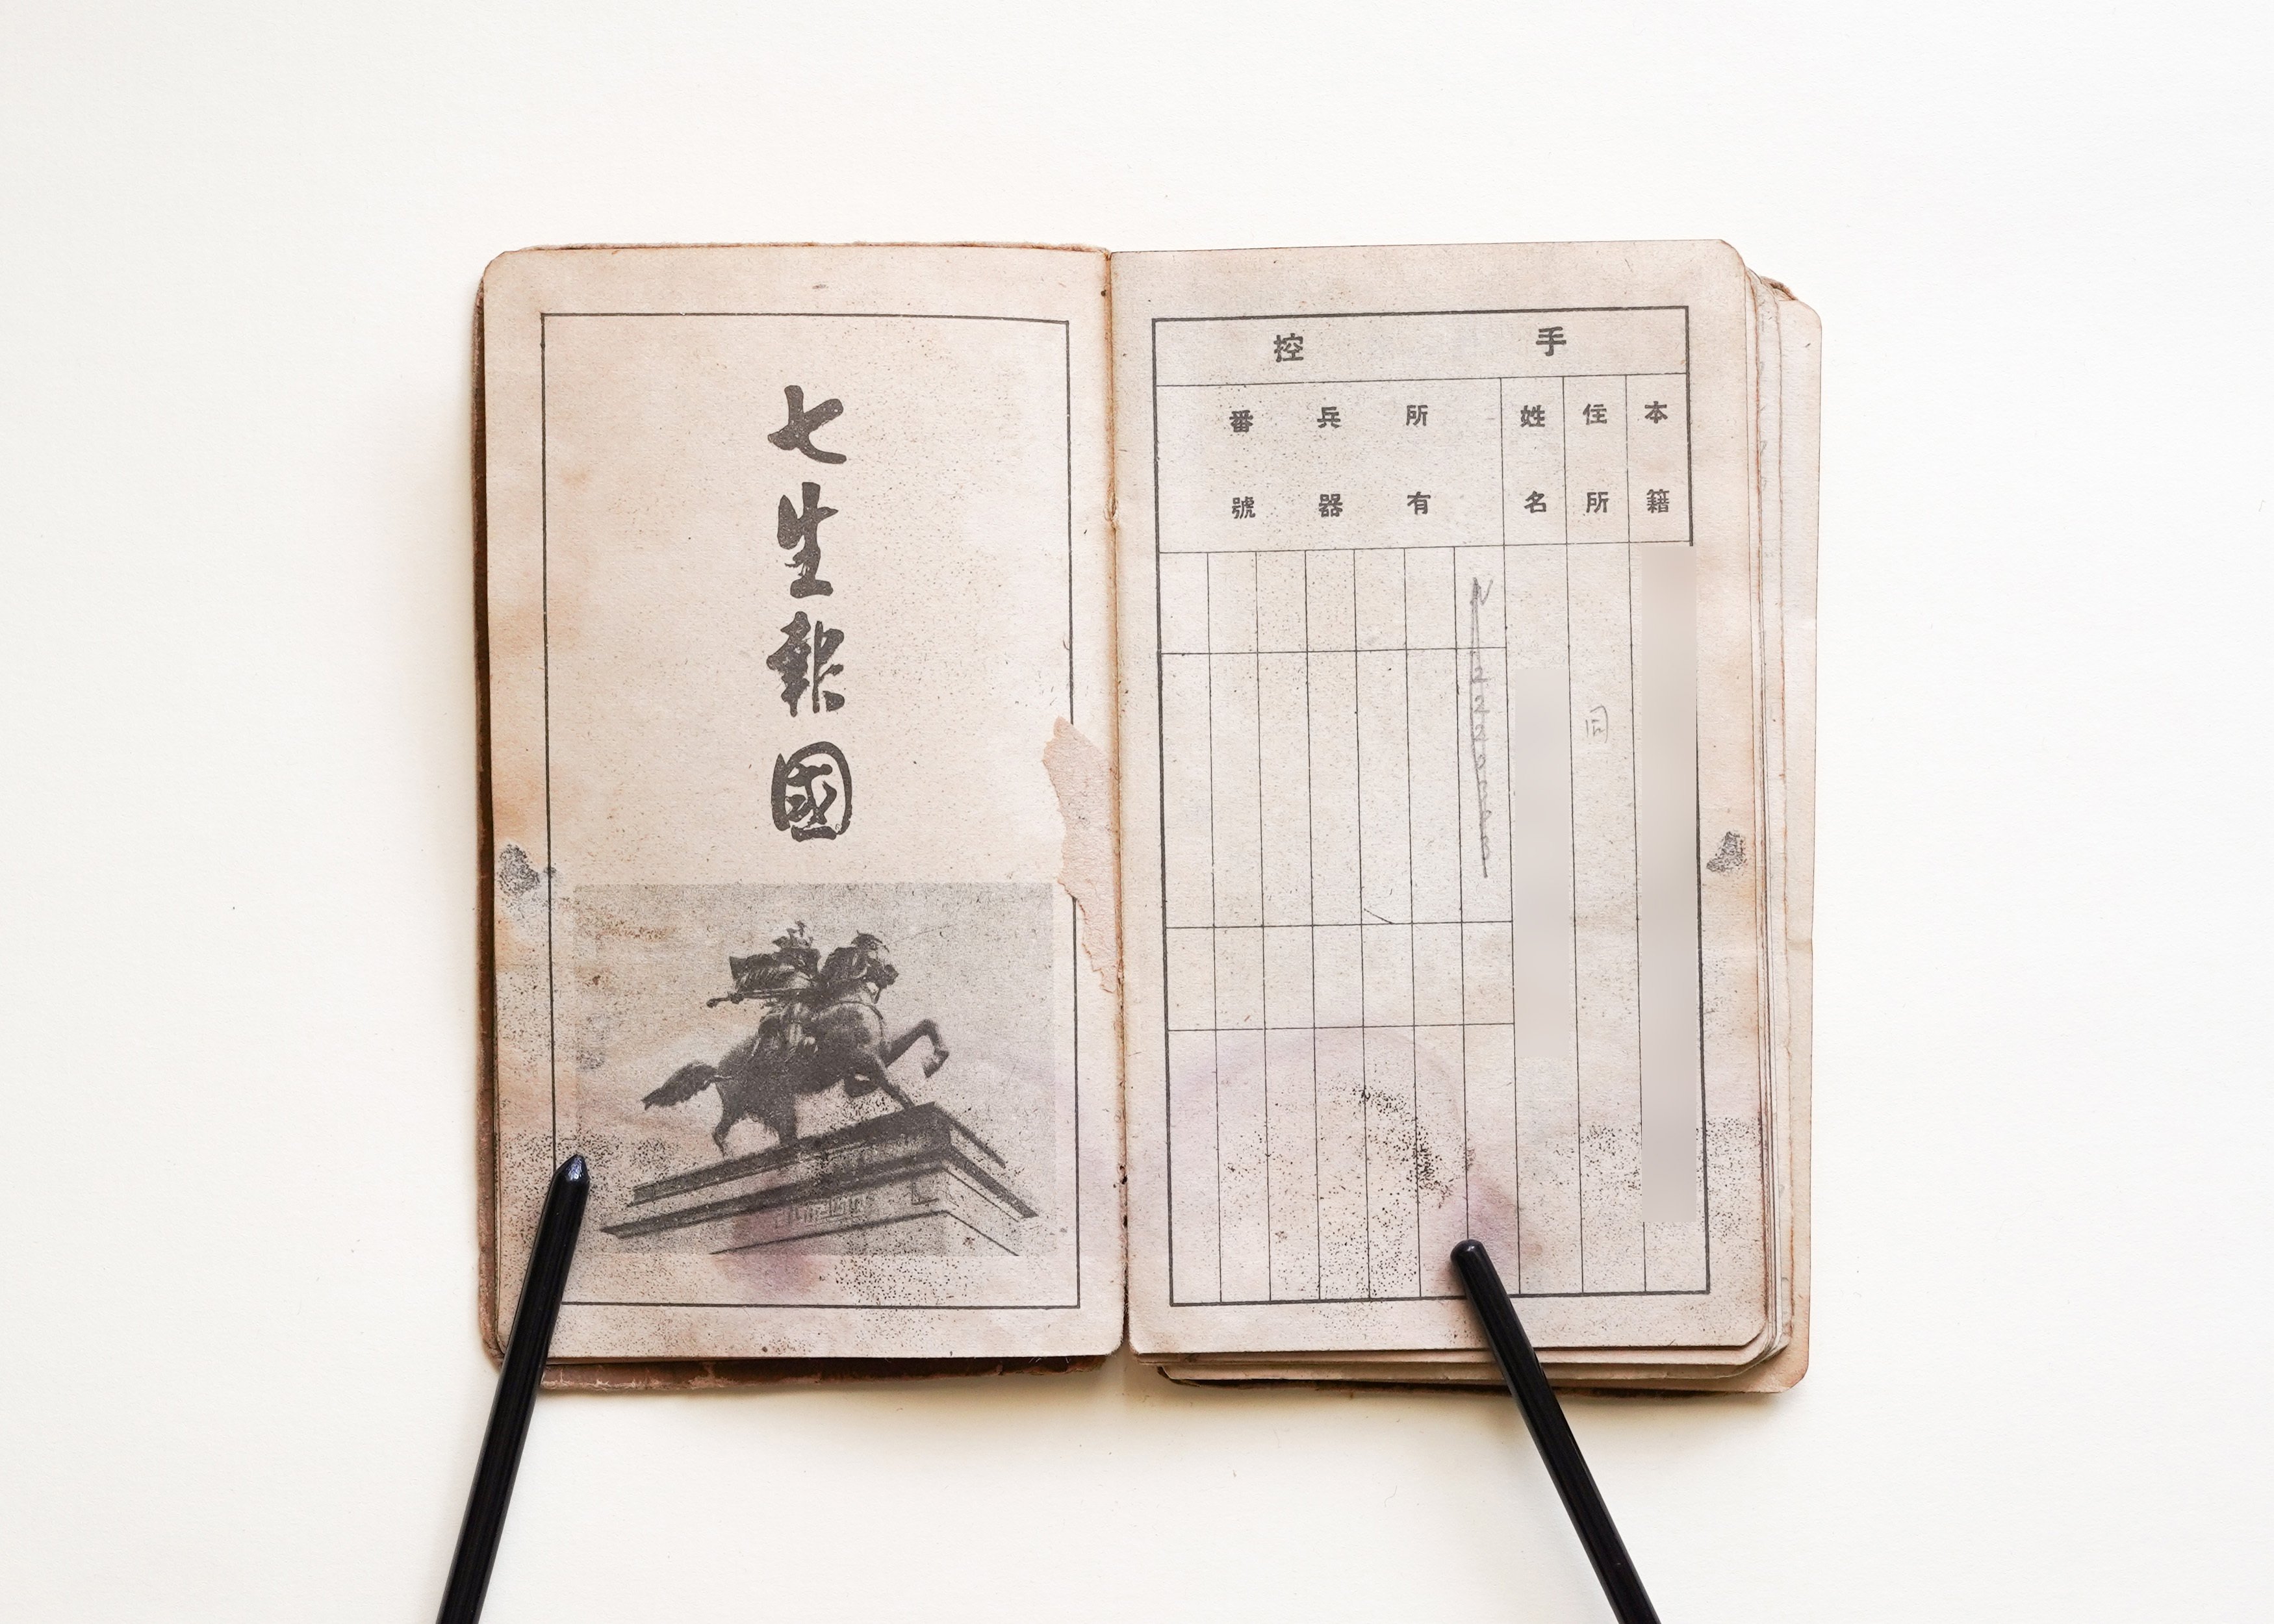 七生報國
手控
本籍
住所
同
姓名
所有兵器番號